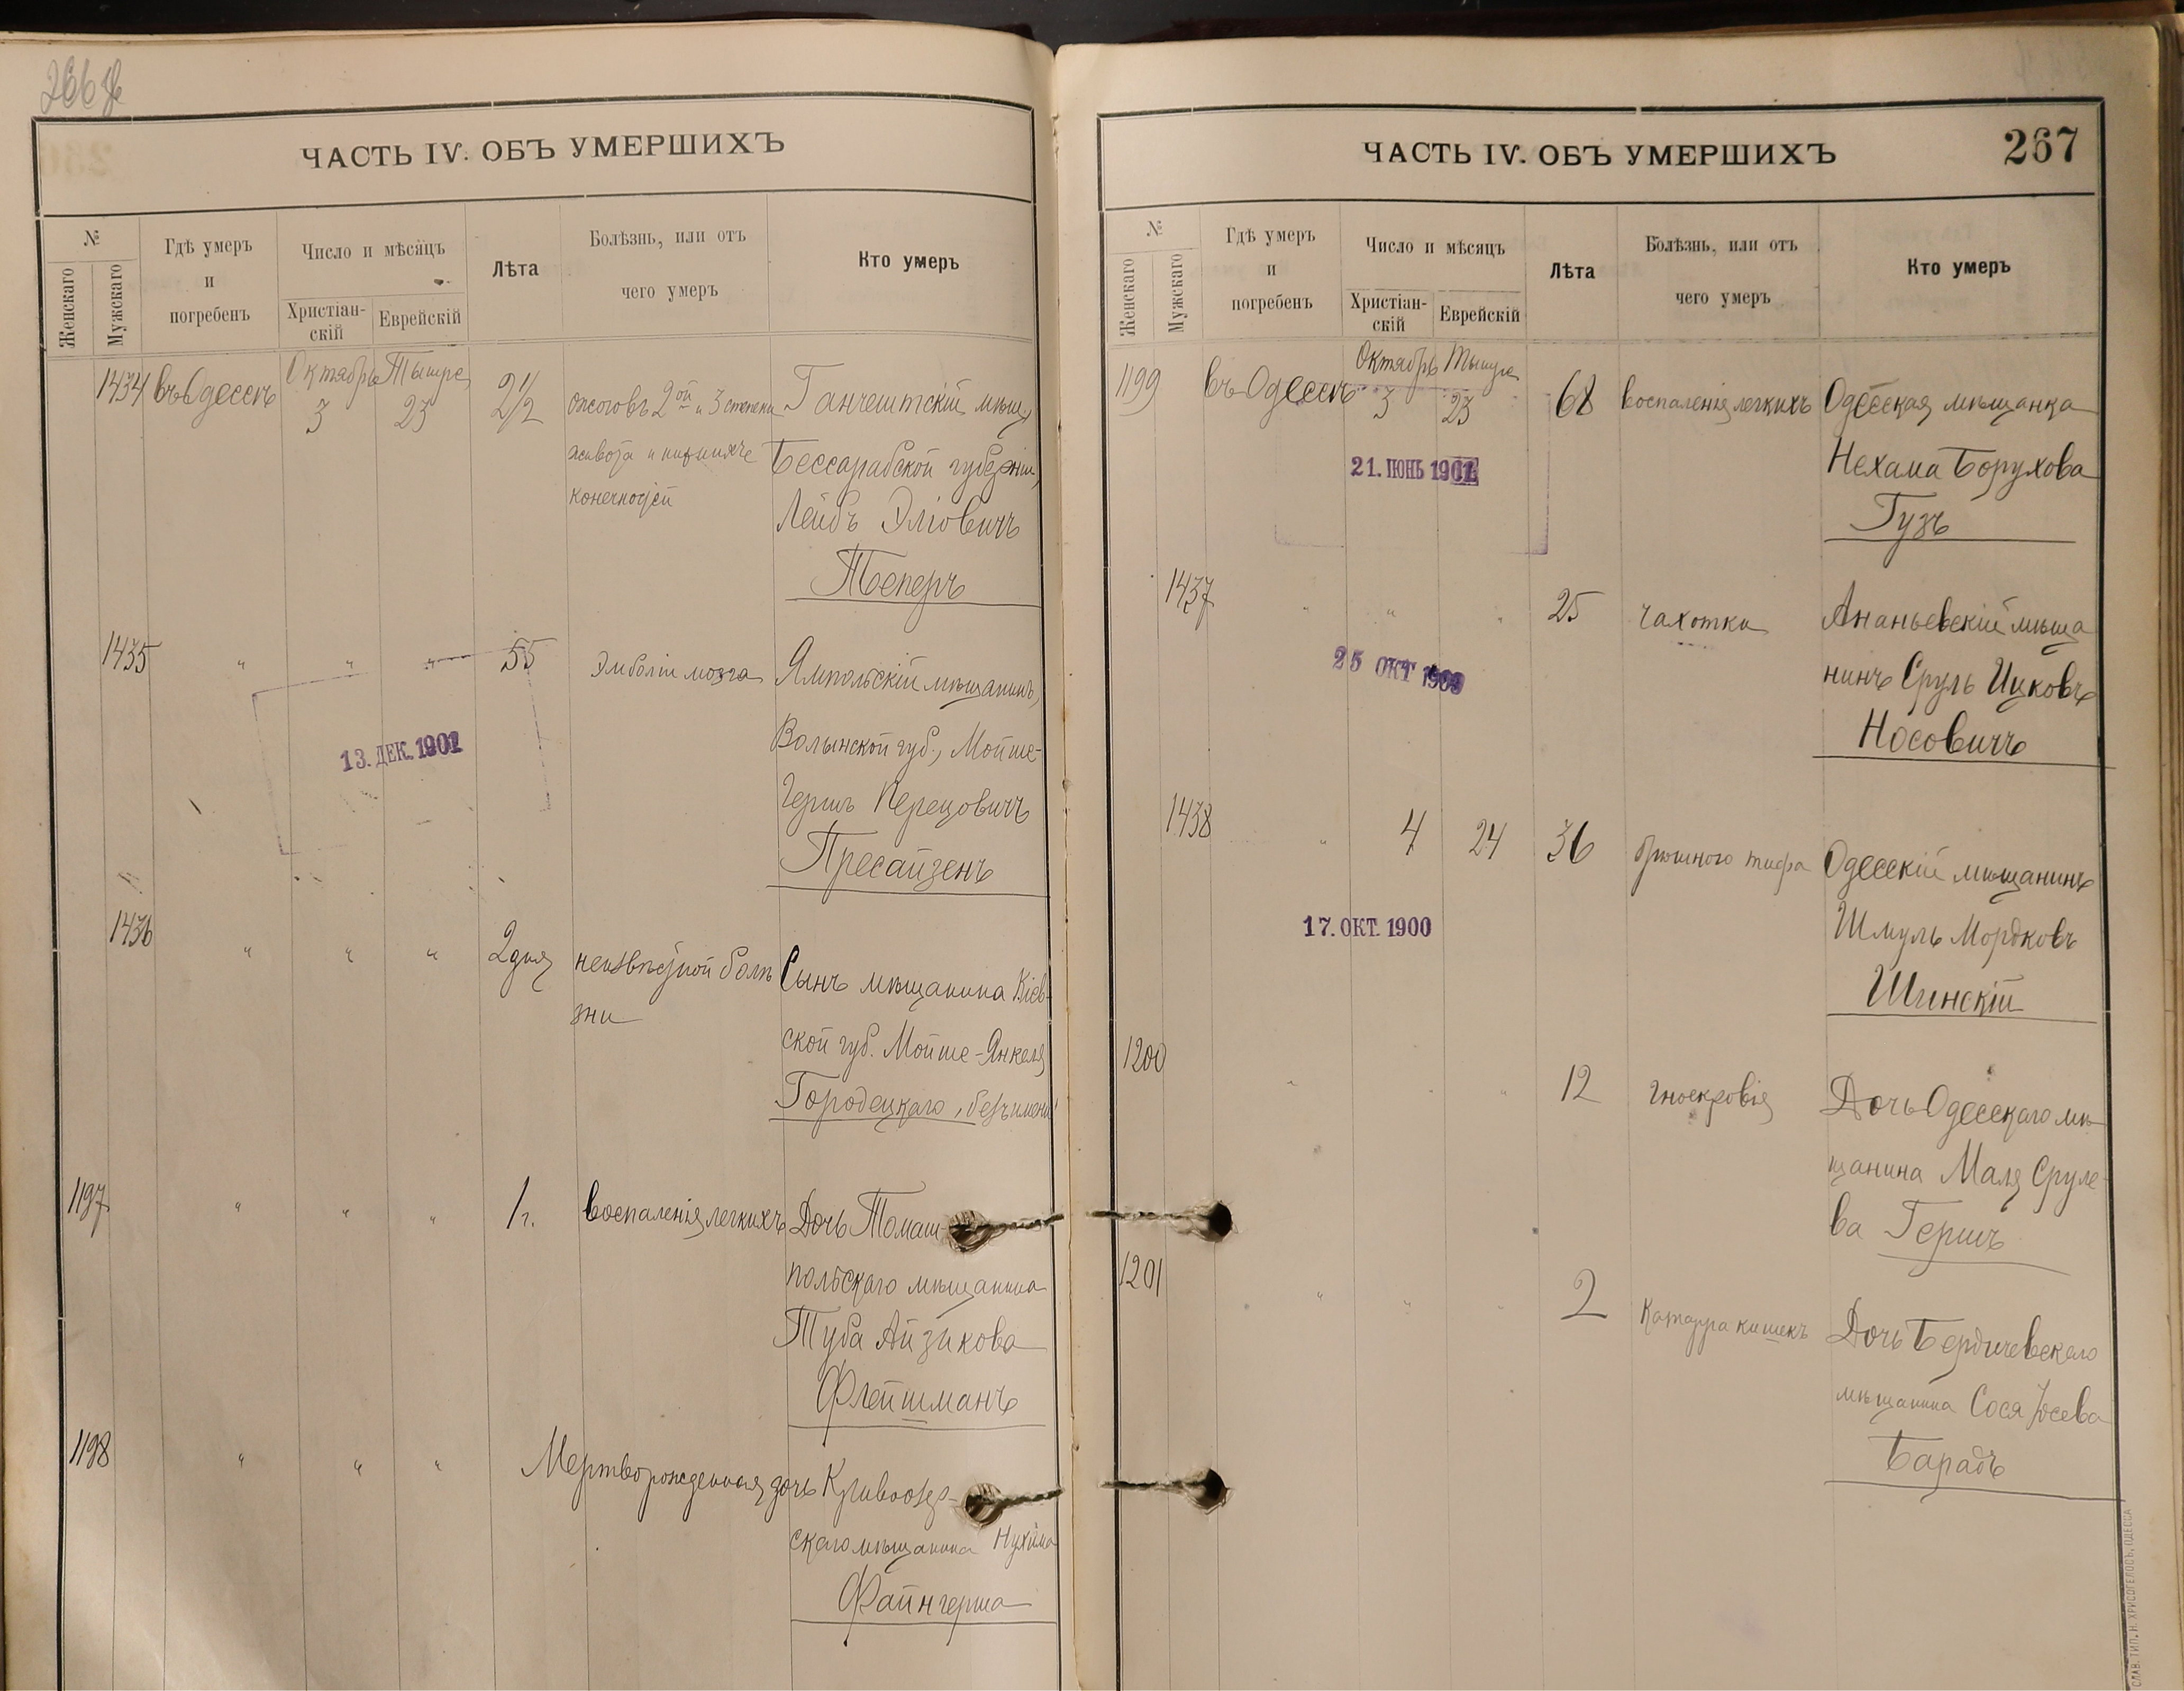 266
ЧАСТЬ IV. ОБЪ УМЕРШИХЪ
№
Женскаго
Мужскаго
Гдѣ умеръ
и
погребенъ
Число и мѣсяцъ
Христіан-
скій
Еврейскій
Лѣта
Болѣзнь, или отъ
чего умеръ
Кто умеръ
1434 въ Одессѣ Октябрь 3 Тишре 23 2½ ожоговъ 2ой и 3 степени
живота и нижнихъ
конечностей
Ганчештскій мѣщ.
Бессарабской губерніи,
Лейбъ Эліовичъ
Теперъ
1435 " " " 55 Эмболіи мозга
Ямпольскій мѣщанинъ,
Волынской губ., Мойше-
Гершъ Перецовичъ
Пресайзенъ
13. ДЕК. 1901
1436 " " " 2 дня неизвѣстной болѣ
зни
Сынъ мѣщанина Кіев-
ской губ. Мойше-Янкеля
Городецкаго, безъ имени
1197 " " " 1 г. воспаленія легкихъ
Дочь Томаш-
польскаго мѣщанина
Туба Айзикова
Флейшманъ
1198 " " " Мертворожденная дочь Кривоозер-
скаго мѣщанина Нухима
Файнгерша
ЧАСТЬ IV. ОБЪ УМЕРШИХЪ
267
№
Женскаго
Мужскаго
Гдѣ умеръ
и
погребенъ
Число и мѣсяцъ
Христіан-
скій
Еврейскій
Лѣта
Болѣзнь, или отъ
чего умеръ
Кто умеръ
1199 въ Одессѣ Октябрь 3 Тишре 23 68 воспаленія легкихъ
Одесская мѣщанка
Нехама Борухова
Гузъ
21. ІЮНЬ
1437 " " " 25 чахотки
Ананьевскій мѣща
нинъ Сруль Ицковъ
Носовичъ
25 ОКТ
1438 " 4 24 36 брюшного тифа
Одесскій мѣщанинъ
Шмуль Мордковъ
Шинскій
17. ОКТ. 1900
1200 " " " 12 гноекровія
Дочь Одесскаго мѣ
щанина Маля Сруле-
ва Гершъ
1201 " " " 2 Катарра кишекъ
Дочь Бердичевскаго
мѣщанина Сося Іосева
Барабъ
СЛАВ. ТИП. Н. ХРИСОГЕЛОСЪ, ОДЕССА